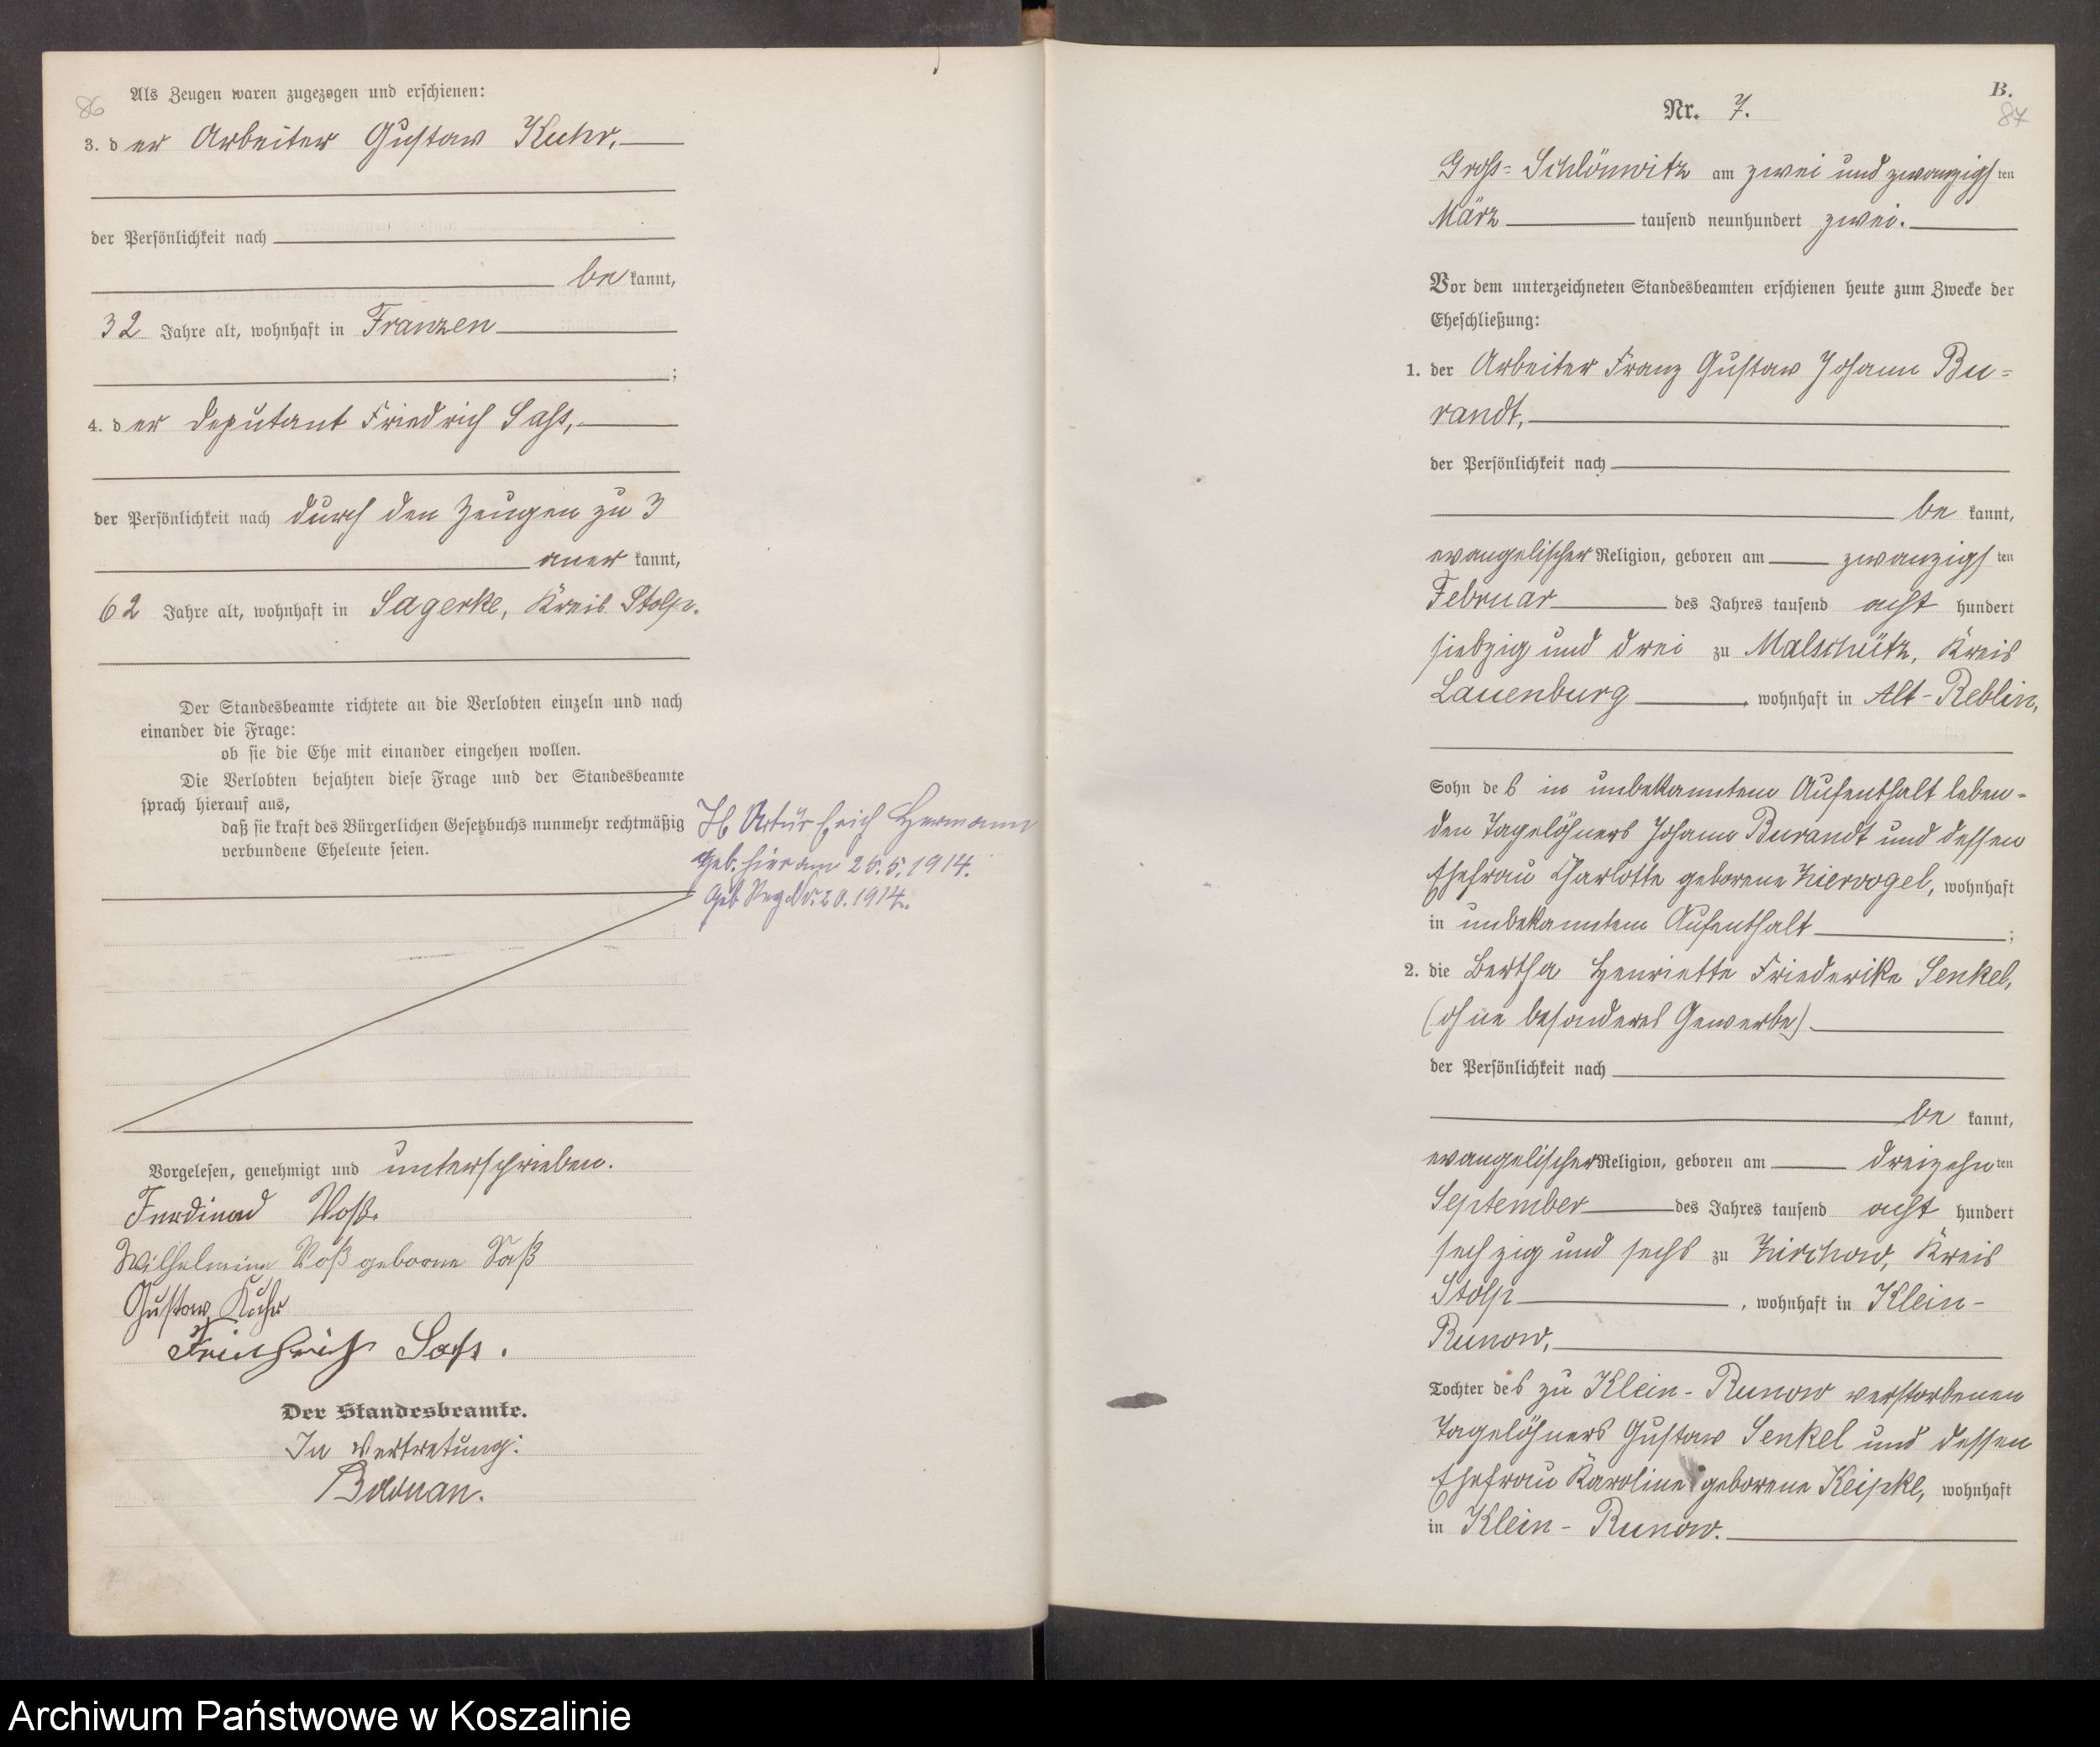 86
Als Zeugen waren zugezogen und erschienen:
3. der Arbeiter Gustav Kuhr,
der Persönlichkeit nach
bekannt,
32 Jahre alt, wohnhaft in Franzen
;
4. der Deputant Friedrich Sahs,
der Persönlichkeit nach durch den Zeugen zu 3
anerkannt,
62 Jahre alt, wohnhaft in Sagerke, Kreis Stolp.
Der Standesbeamte richtete an die Verlobten einzeln und nach
einander die Frage:
ob sie die Ehe mit einander eingehen wollen.
Die Verlobten bejahten diese Frage und der Standesbeamte
sprach hierauf aus,
daß sie kraft des Bürgerlichen Gesetzbuchs nunmehr rechtmäßig
verbundene Eheleute seien.
Artur Erich Hermann
geb. hier am 25.5.1914.
Geb. Reg. Nr. 20.1914.
Vorgelesen, genehmigt und unterschrieben.
Ferdinand Voß.
Wilhelmine Voß geborne Saß
Gustav Kuhr
Friedrich Sahs.
Der Standesbeamte.
In Vertretung:
B.
87
Nr. 7.
Gross-Schlönwitz am zwei und zwanzigsten
März tausend neunhundert zwei.
Vor dem unterzeichneten Standesbeamten erschienen heute zum Zwecke der
Eheschließung:
1. der Arbeiter Franz Gustav Johann Bu=
randt,
der Persönlichkeit nach
bekannt,
evangelischer Religion, geboren am zwanzigsten
Februar des Jahres tausend acht hundert
siebzig und drei zu Malschütz, Kreis
Lauenburg, wohnhaft in Alt-Reblin,
Sohn des in unbekanntem Aufenthalt leben-
den Tagelöhners Johann Burandt und dessen
Ehefrau Charlotte geborene Ziervogel, wohnhaft
in unbekanntem Aufenthalt;
2. die Bertha Henriette Friederike Senkel,
(ohne besonderes Gewerbe)
der Persönlichkeit nach
bekannt,
evangelischer Religion, geboren am dreizehnten
September des Jahres tausend acht hundert
sechzig und sechs zu Zirchow, Kreis
Stolp, wohnhaft in Klein-
Runow,
Tochter des zu Klein-Runow verstorbenen
Tagelöhners Gustav Senkel und dessen
Ehefrau Karoline geborene Keipke, wohnhaft
in Klein-Runow.
Archiwum Państwowe w Koszalinie